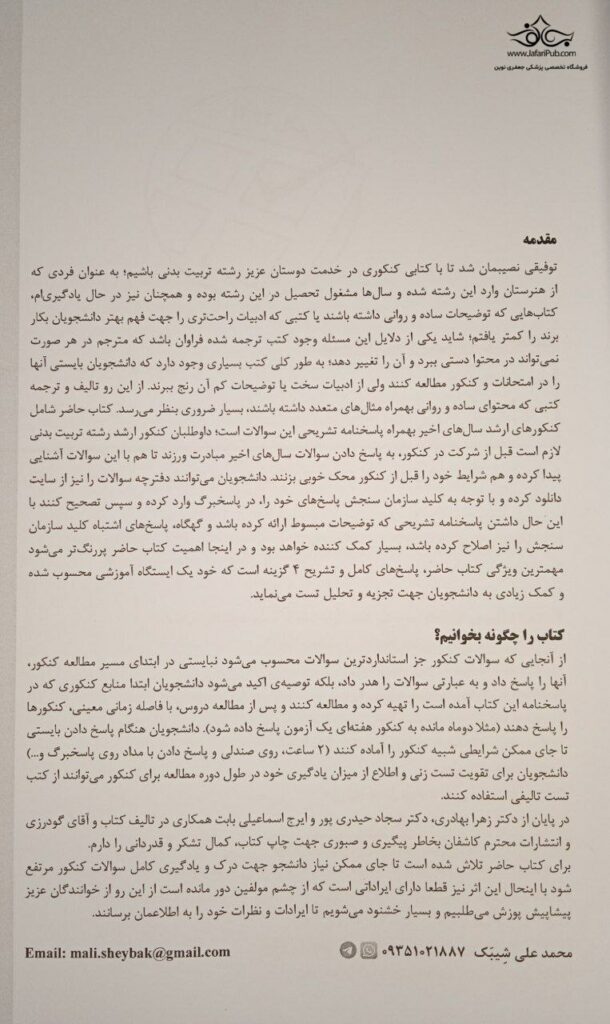 www.JafariPub.com
فروشگاه تخصصی پزشکی جعفری نوین
مقدمه
توفیقی نصیبمان شد تا با کتابی کنکوری در خدمت دوستان عزیز رشته تربیت بدنی باشیم؛ به عنوان فردی که
از هنرستان وارد این رشته شده و سال‌ها مشغول تحصیل در این رشته بوده و همچنان نیز در حال یادگیری‌ام،
کتاب‌هایی که توضیحات ساده و روانی داشته باشند یا کتبی که ادبیات راحت‌تری را جهت فهم بهتر دانشجویان بکار
برند را کمتر یافتم؛ شاید یکی از دلایل این مسئله وجود کتب ترجمه شده فراوان باشد که مترجم در هر صورت
نمی‌تواند در محتوا دستی ببرد و آن را تغییر دهد؛ به طور کلی کتب بسیاری وجود دارد که دانشجویان بایستی آنها
را در امتحانات و کنکور مطالعه کنند ولی از ادبیات سخت یا توضیحات کم آن رنج ببرند. از این رو تالیف و ترجمه
کتبی که محتوای ساده و روانی بهمراه مثال‌های متعدد داشته باشند، بسیار ضروری بنظر می‌رسد. کتاب حاضر شامل
کنکورهای ارشد سال‌های اخیر بهمراه پاسخنامه تشریحی این سوالات است؛ داوطلبان کنکور ارشد رشته تربیت بدنی
لازم است قبل از شرکت در کنکور، به پاسخ دادن سوالات سال‌های اخیر مبادرت ورزند تا هم با این سوالات آشنایی
پیدا کرده و هم شرایط خود را قبل از کنکور محک خوبی بزنند. دانشجویان می‌توانند دفترچه سوالات را نیز از سایت
دانلود کرده و با توجه به کلید سازمان سنجش پاسخ‌های خود را، در پاسخبرگ وارد کرده و سپس تصحیح کنند با
این حال داشتن پاسخنامه تشریحی که توضیحات مبسوط ارائه کرده باشد و گهگاه، پاسخ‌های اشتباه کلید سازمان
سنجش را نیز اصلاح کرده باشد، بسیار کمک کننده خواهد بود و در اینجا اهمیت کتاب حاضر پررنگ‌تر می‌شود
مهمترین ویژگی کتاب حاضر، پاسخ‌های کامل و تشریح ۴ گزینه است که خود یک ایستگاه آموزشی محسوب شده
و کمک زیادی به دانشجویان جهت تجزیه و تحلیل تست می‌نماید.
کتاب را چگونه بخوانیم؟
از آنجایی که سوالات کنکور جز استانداردترین سوالات محسوب می‌شود نبایستی در ابتدای مسیر مطالعه کنکور،
آنها را پاسخ داد و به عبارتی سوالات را هدر داد، بلکه توصیه‌ی اکید می‌شود دانشجویان ابتدا منابع کنکوری که در
پاسخنامه این کتاب آمده است را تهیه کرده و مطالعه کنند و پس از مطالعه دروس، با فاصله زمانی معینی، کنکورها
را پاسخ دهند (مثلا دوماه مانده به کنکور هفته‌ای یک آزمون پاسخ داده شود). دانشجویان هنگام پاسخ دادن بایستی
تا جای ممکن شرایطی شبیه کنکور را آماده کنند (۲ ساعت، روی صندلی و پاسخ دادن با مداد روی پاسخبرگ و...)
دانشجویان برای تقویت تست زنی و اطلاع از میزان یادگیری خود در طول دوره مطالعه برای کنکور می‌توانند از کتب
تست تالیفی استفاده کنند.
در پایان از دکتر زهرا بهادری، دکتر سجاد حیدری پور و ایرج اسماعیلی بابت همکاری در تالیف کتاب و آقای گودرزی
و انتشارات محترم کاشفان بخاطر پیگیری و صبوری جهت چاپ کتاب، کمال تشکر و قدردانی را دارم.
برای کتاب حاضر تلاش شده است تا جای ممکن نیاز دانشجو جهت درک و یادگیری کامل سوالات کنکور مرتفع
شود با اینحال این اثر نیز قطعا دارای ایراداتی است که از چشم مولفین دور مانده است از این رو از خوانندگان عزیز
پیشاپیش پوزش می‌طلبیم و بسیار خشنود می‌شویم تا ایرادات و نظرات خود را به اطلاعمان برسانند.
محمد علی شِیبَک ۰۹۳۵۱۰۲۱۸۸۷ Email: mali.sheybak@gmail.com